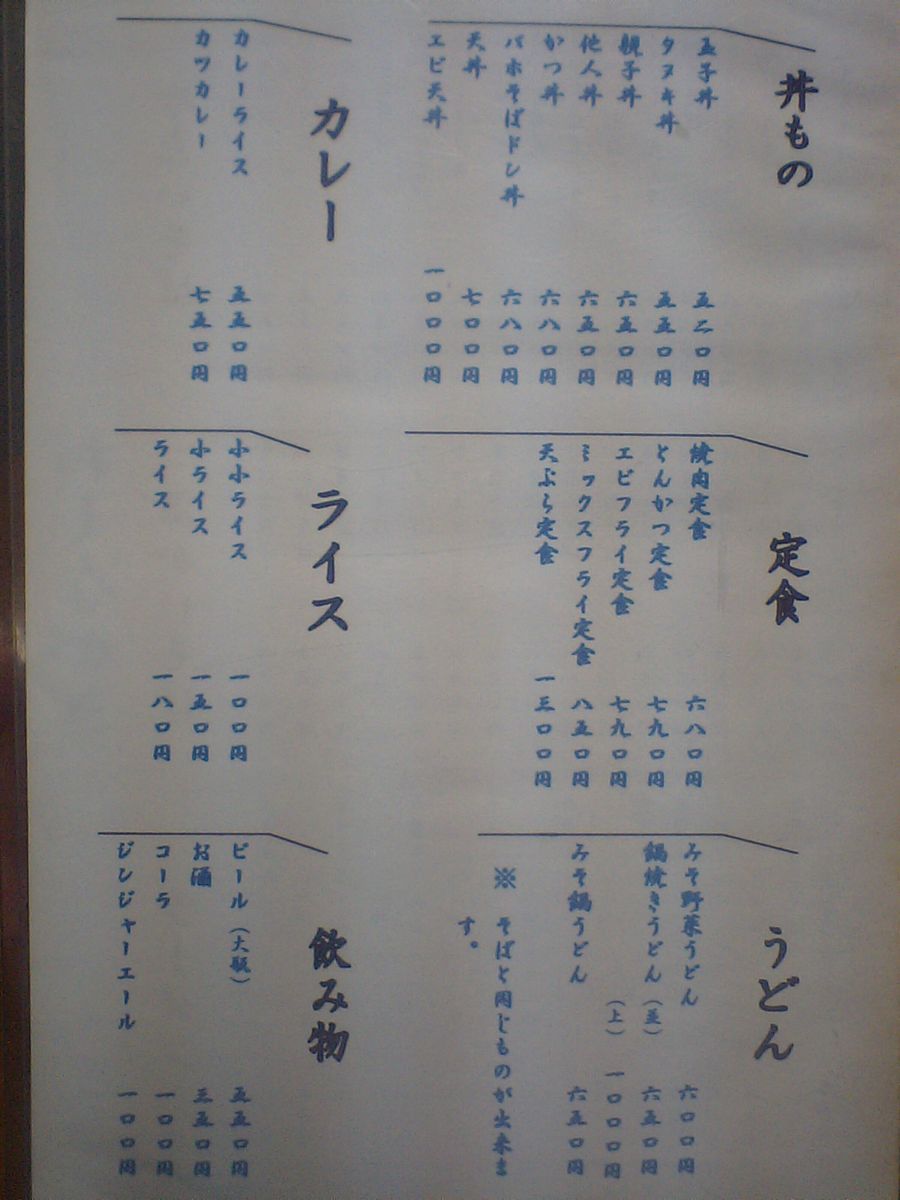 丼もの
玉子丼 五二〇円
タヌキ丼 五五〇円
親子丼 六五〇円
他人丼 六五〇円
かつ丼 六八〇円
バホそばドン丼 六八〇円
天丼 七〇〇円
エビ天丼 一〇〇〇円
カレー
カレーライス 五五〇円
カツカレー 七五〇円
定食
焼肉定食 六八〇円
とんかつ定食 七九〇円
エビフライ定食 七九〇円
ミックスフライ定食 八五〇円
天ぷら定食 一三〇〇円
ライス
小小ライス 一〇〇円
小ライス 一五〇円
ライス 一八〇円
うどん
みそ野菜うどん 六〇〇円
鍋焼きうどん（並） 六五〇円
（上） 一〇〇〇円
みそ鍋うどん 六五〇円
※ そばと同じものが出来ま
す。
飲み物
ビール（大瓶） 五五〇円
お酒 三五〇円
コーラ 一〇〇円
ジンジャーエール 一〇〇円